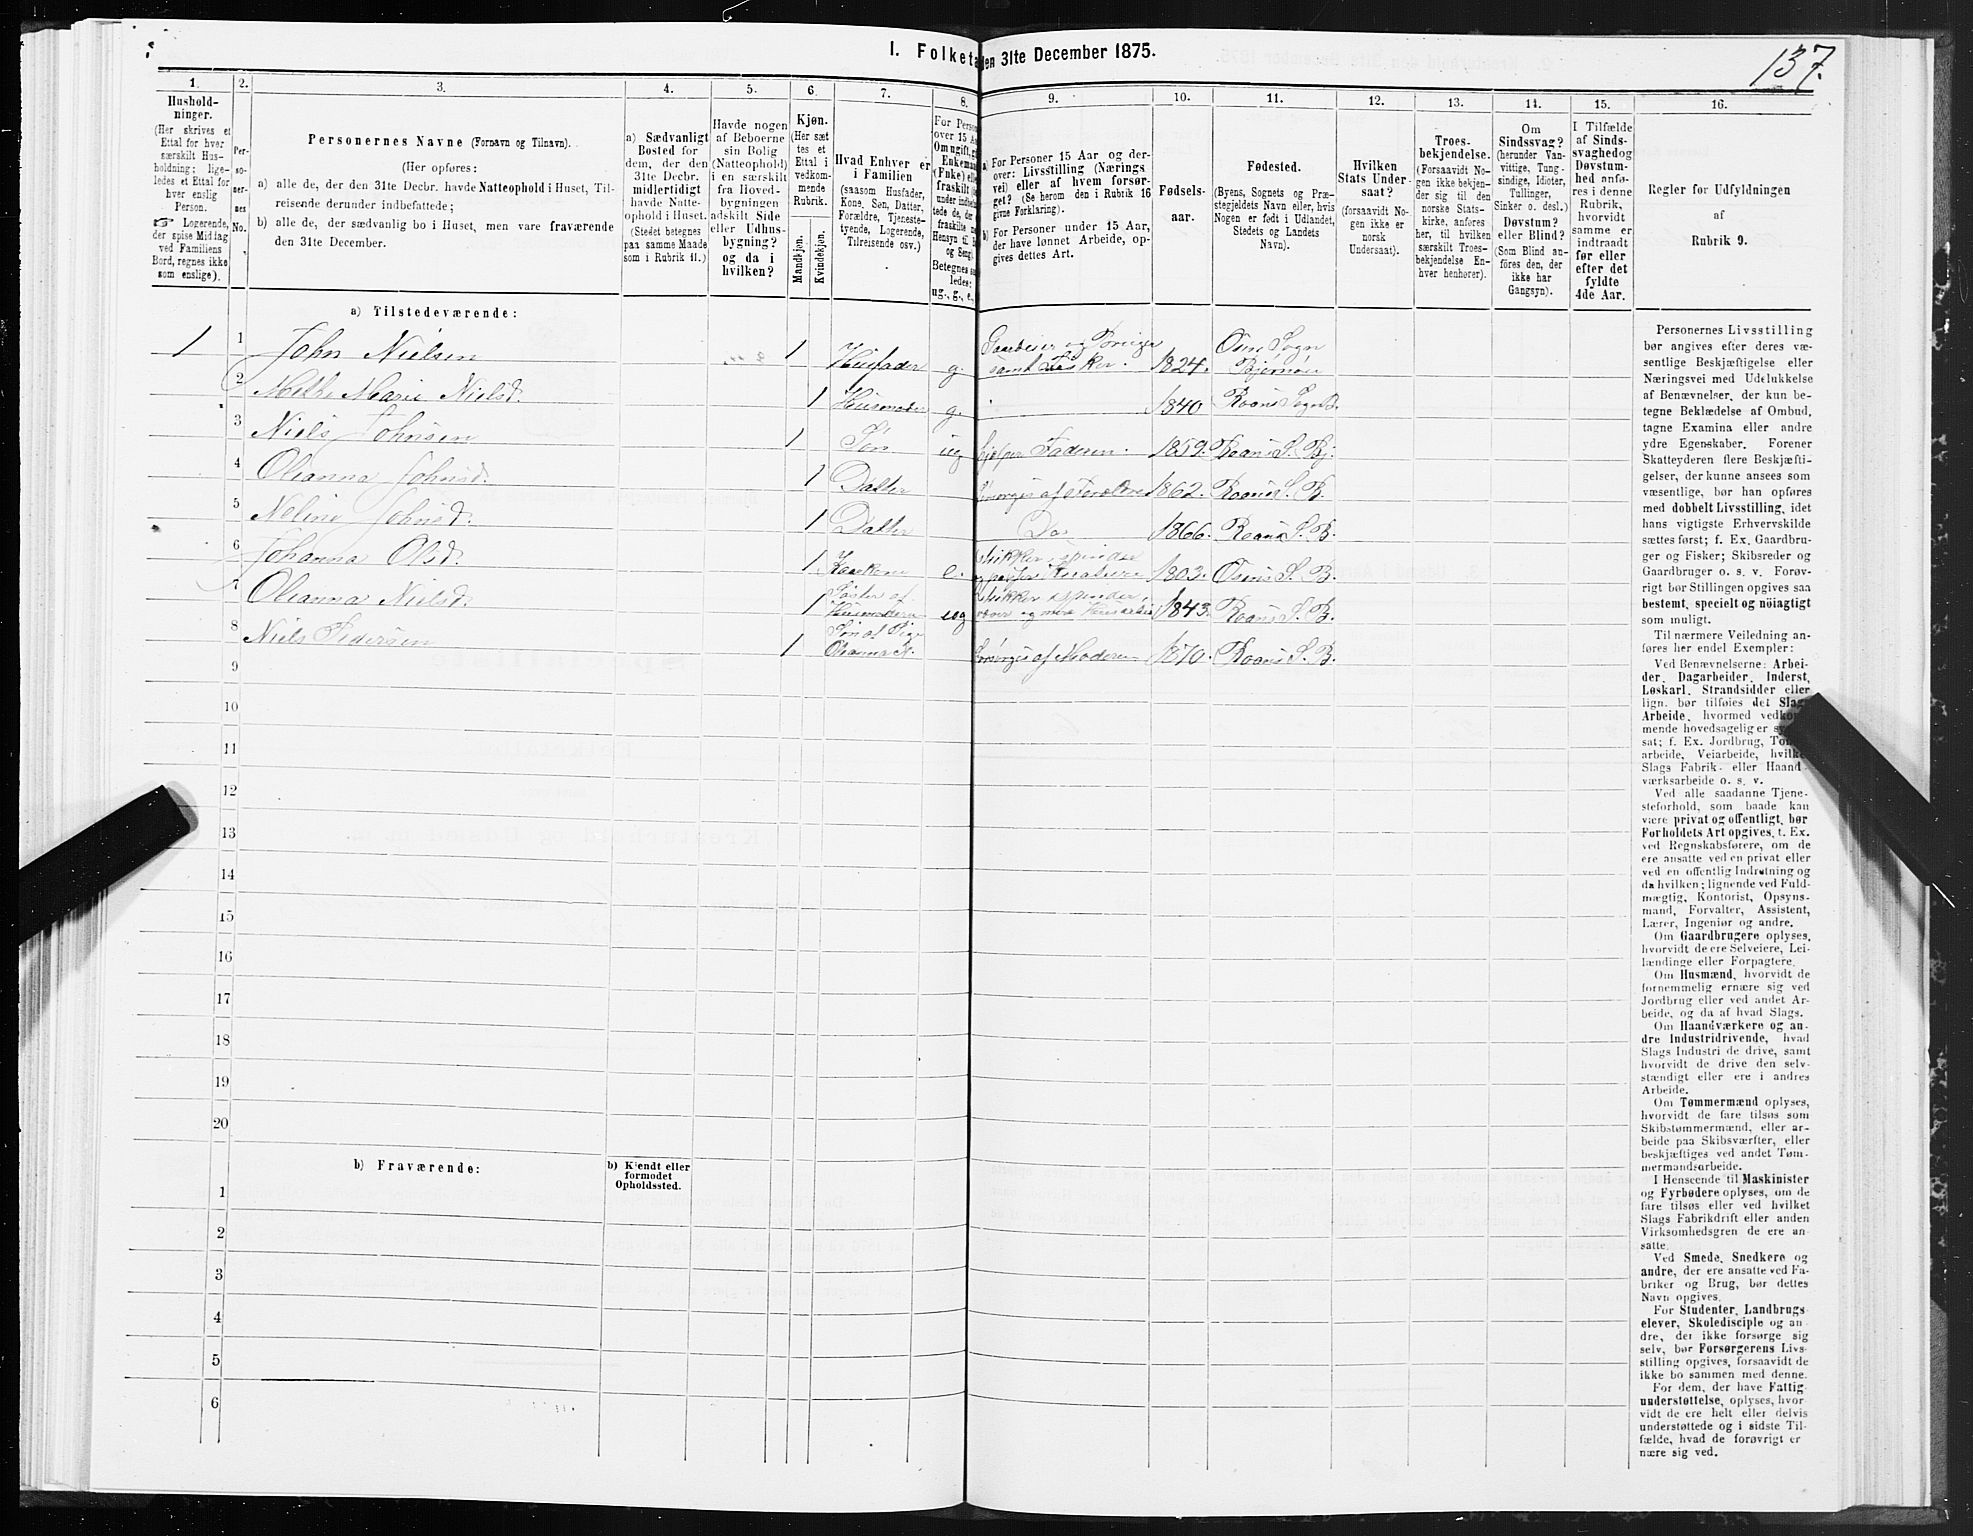 I. Folketa
den 31te December 1875.
137.
1.
Hushold-
ninger.
(Her skrives et
Ettal for hver
særskilt Hus-
holdning; lige-
ledes et Ettal for
hver enslig
Person.
Logerende,
der spise Middag
ved Familiens
Bord, regnes ikke
som enslige).
2.
Per-
so-
ner-
nes
No.
3.
Personernes Navne (Fornavn og Tilnavn).
(Her opføres:
a) alle de, der den 31te Decbr. havde Natteophold i Huset, Til-
reisende derunder indbefattede;
b) alle de, der sædvanlig bo i Huset, men vare fraværende
den 31te December.
4.
a) Sædvanligt
Bosted for
dem, der den
31te Decbr.
midlertidigt
havde Natte-
ophold i Huset.
(Stedet betegnes
paa samme Maade
som i Rubrik 11.)
5.
Havde nogen
af Beboerne
sin Bolig
(Natteophold)
i en særskilt
fra Hoved-
bygningen
adskilt Side
eller Udhus-
bygning?
og da i
hvilken?
6.
Kjøn.
(Her sæt
tes et
Ettal i
vedkom-
mende
Rubrik.
Mandkjøn.
Kvindekjøn.
7.
Hvad Enhver er
i Familien
(saasom Husfader,
Kone, Søn, Datter,
Forældre, Tjeneste-
tyende, Logerende,
Tilreisende osv.)
8.
For Person
over 15 Aa
Enkeman
(Enke) e
Betegnes sa
ledes:
ug., g., e.,
9.
a) For Personer 15 Aar og der-
over: Livsstilling (Nærings
vei) eller af hvem forsør-
get? (Se herom den i Rubrik 16
givne Forklaring).
b) For Personer under 15 Aar,
der have lønnet Arbeide, op-
gives dettes Art.
10.
Fødsels-
aar.
11.
Fødested.
(Byens, Sognets og Præ-
stegjeldets Navn eller, hvis
Nogen er født i Udlandet,
Stedets og Landets
Navn).
12.
Hvilken
Stats Under-
saat?
(forsaavidt No-
gen ikke er
norsk
Undersaat).
13.
Troes-
bekjendelse.
(Forsaavidt No-
gen ikke bekjen-
der sig til den
norske Stats-
kirke, anføres
her, til hvilken
særskilt Troes-
bekjendelse En-
hver henhører).
14.
Om
Sindssvag?
(herunder Van-
vittige, Tung-
sindige, Idioter,
Tullinger,
Sinker o. desl.)
Døvstum?
eller Blind?
(Som Blind an-
föres den, der
ikke har
Gangsyn).
15.
I Tilfælde
af Sinds-
svaghed og
Døvstum-
hed anfø-
res i denne
Rubrik,
hvorvidt
samme er
indtraadt
før eller
efter det
fyldte
4de Aar.
16.
Regler for Udfyldningen
af
Rubrik 9.
a) Tilstedeværende:
1 1 John Nielsen 1 Husfader g. Gaardeier og samt Fisker. 1824. Osens Sogn
2 Mette Marie Nielsd. 1 Husmoder g. 1840 Roans Sogn B.
3 Niels Johnsen 1 Søn ug hjelper Faderen. 1859. Roans S. Bj.
4 Oleanna Johnsd. 1 Datter Forsørges af Forældre 1862. Roans S. B.
5 Neline Johnsd. 1 Datter Do 1866. Roans S. B.
6 Johanna Olsd. 1 e. strikker, spinder 1803. Osens S. B.
7 Oleanna Nielsd. 1 Søster af Husmoderen ug strikker spinder, 1843. Roans S. B.
8 Niels Pedersen 1 Søn af Pige Oleanna N. Forsørges af Moderen 1870. Roans S. B.
9
10
11
12
13
14
15
16
17
18
19
20
b) Fraværende:
b) Kjendt eller
formodet
Opholdssted.
1
2
3
4
5
6
Personernes Livsstilling
bør angives efter deres væ-
sentlige Beskjæftigelse eller
Næringsvei med Udelukkelse
af Benævnelser, der kun be-
tegne Beklædelse af Ombud,
tagne Examina eller andre
ydre Egenskaber. Forener
Skatteyderen flere Beskjæfti-
gelser, der kunne ansees som
væsentlige, bør han opføres
med dobbelt Livsstilling, idet
hans vigtigste Erhvervskilde
sættes først; f. Ex. Gaardbru-
ger og Fisker; Skibsreder og
Gaardbruger o. s. v. Forøv-
rigt bør Stillingen opgives saa
bestemt, specielt og nöiagtigt
som muligt.
Til nærmere Veiledning an-
føres her endel Exempler:
Ved Benævnelserne: Arbei-
der, Dagarbeider, Inderst,
Løskarl, Strandsidder eller
lign. bør tilføies det Slags
Arbeide, hvormed vedkom-
mende hovedsagelig er
sat; f. Ex. Jordbrug,
arbeide, Veiarbeide, hvilket
Slags Fabrik- eller Haand-
værksarbeide o. s. v.
Ved alle saadanne Tjene-
steforhold, som baade kan
være privat og offentligt, bør
Forholdets Art opgives, t. Ex.
ved Regnskabsførere, om de
ere ansatte ved en privat eller
ved en offentlig Indretning og
da hvilken; lignende ved Fuld-
mægtig, Kontorist, Opsyns-
mand, Forvalter, Assistent,
Lærer, Ingeniør og andre.
Om Gaardbrugere oplyses,
hvorvidt de ere Selveiere, Lei-
lændinge eller Forpagtere.
Om Husmænd, hvorvidt de
fornemmelig ernære sig ved
Jordbrug eller ved andet Ar-
beide, og da af hvad Slags.
Om Haandværkere og an-
dre Industridrivende, hvad
Slags Industri de drive, samt
hvorvidt de drive den selv-
stændigt eller ere i andres
Arbeide.
Om Tømmermænd oplyses,
hvorvidt de fare tilsøs som
Skibstømmermænd, eller ar-
beide paa Skibsværfter, eller
beskjæftiges ved andet Tøm-
mermandsarbeide.
I Henseende til Maskinister
og Fyrbødere oplyses, om de
fare tilsøs eller ved hvilket
Slags Fabrikdrift eller anden
Virksomhedsgren de ere an-
satte.
Ved Smede, Snedkere og
andre, der ere ansatte ved Fa-
briker og Brug, bør dettes
Navn opgives.
For Studenter, Landbrugs-
elever, Skoledisciple og an-
dre, der ikke forsørge sig
selv, bør Forsørgerens Livs-
stilling opgives, forsaavidt de
ikke bo sammen med denne.
For dem, der have Fattig-
understøttelse, oplyses, hvor-
vidt de ere helt eller delvis
understøttede og i sidste Til-
fælde, hvad de forøvrigt er-
nære sig ved.